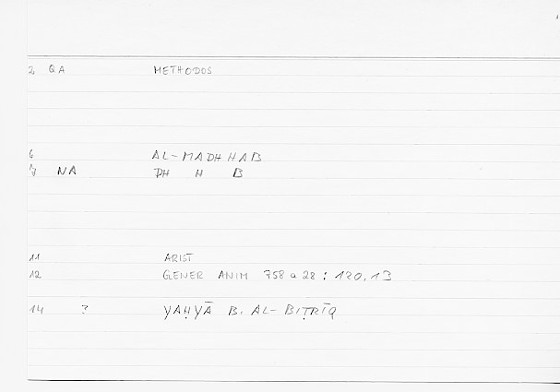 2 QA METHODOS
6 AL-MADHHAB
7 NA DH H B
11 ARIST
12 GENER ANIM 758 a 28 : 120,13
14 ? YAḤYĀ B. AL-BIṬRĪQ